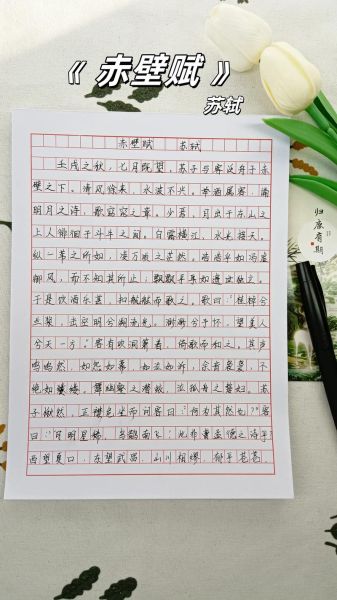 《赤壁赋》
苏轼
赤壁赋 苏轼
壬戌之秋，七月既望，苏子与客泛舟于赤
壁之下。清风徐来，水波不兴。举酒属客，诵
明月之诗，歌窈窕之章。少焉，月出于东山之
上，徘徊于斗牛之间。白露横江，水光接天。
纵一苇之所如，凌万顷之茫然。浩浩乎如冯虚
御风，而不知其所止；飘飘乎如遗世独立，
于是饮酒乐甚，扣舷而歌之。歌曰："桂棹兮
兰桨，击空明兮溯流光。渺渺兮予怀，望美人
兮天一方。"客有吹洞箫者，倚歌而和之。其声
呜呜然，如怨如慕，如泣如诉，余音袅袅，不
绝如缕。舞幽壑之潜蛟，泣孤舟之嫠妇。苏
子愀然，正襟危坐而问客曰："何为其然也？"客
曰："月明星稀，乌鹊南飞，此非曹孟德之诗乎？
西望夏口，东望武昌，山川相缪，郁乎苍苍，
归鹿有期